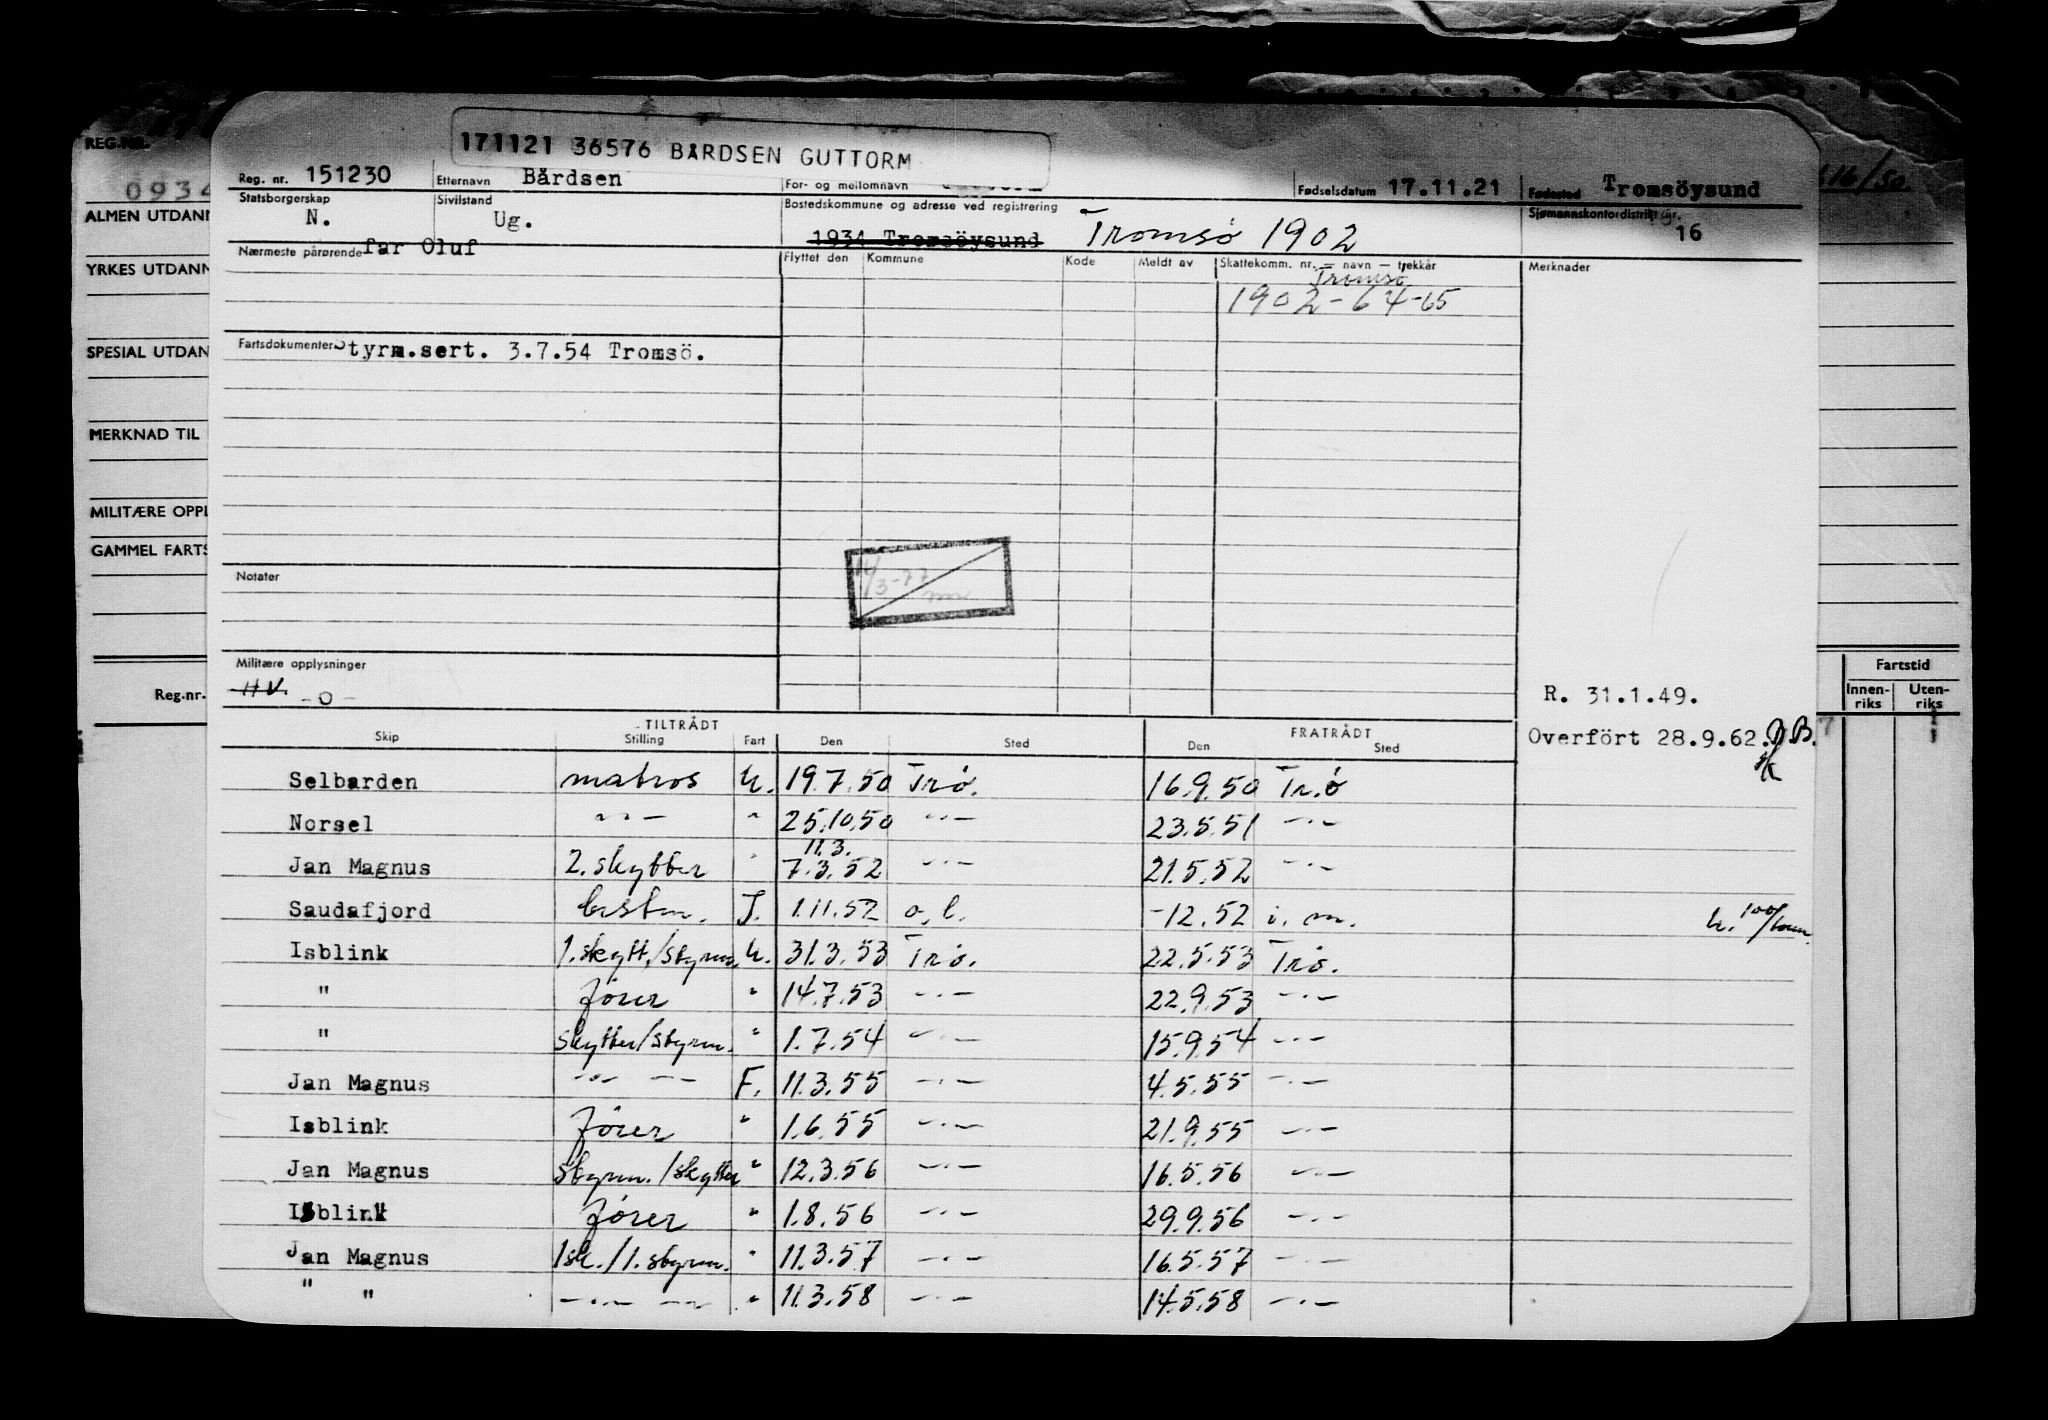 171121 36576 BÅRDSEN GUTTORM
REG.NR.
0934
Reg. nr. 151230 Etternavn Bårdsen For- og mellomnavn Fødselsdatum 17.11.21 Fødested Tromsöysund
16/50.
Statsborgerskap N. Sivilstand Ug. Bostedskommune og adresse ved registrering 1934 Tromsöysund Tromsø 1902 Sjømannskontordistrikt nr. 16
ALMEN UTDANN
Nærmeste pårørende far Oluf Flyttet den Kommune Kode Meldt av Skattekomm. nr. – navn – trekkår Merknader
YRKES UTDANN
Tromsø
1902-64-65
SPESIAL UTDAN
Fartsdokumenter Styrm.sert. 3.7.54 Tromsö.
MERKNAD TIL
MILITÆRE OPPL
GAMMEL FARTS
Notater
14/3-77
Militære opplysninger
H V. -0-
Reg.nr.
R. 31.1.49.
Overfört 28.9.62.
Fartstid
Innen-riks Uten-riks
TILTRÅDT FRATRÅDT
Skip Stilling Fart Den Sted Den Sted
Selbarden matros U. 19.7.50 Trø. 16.9.50 Tr.ø
Norsel -"- " 25.10.50 -"- 23.5.51 -"-
11.3.
Jan Magnus 2. skytter " 7.3.52 -"- 21.5.52 -"-
Saudafjord bestm. I. 1.11.52 o.l. -12.52 i.m.
Isblink 1. skytt./styrm. U. 31.3.53 Trø. 22.5.53 Trø.
" fører " 14.7.53 -"- 22.9.53 -"-
" skytter/styrm. " 1.7.54 -"- 15.9.54 -"-
Jan Magnus -"- -"- F. 11.3.55 -"- 4.5.55 -"-
Isblink fører " 1.6.55 -"- 21.9.55 -"-
Jan Magnus styrm./skytter " 12.3.56 -"- 16.5.56 -"-
Isblink fører " 1.8.56 -"- 29.9.56 -"-
Jan Magnus 1sk./1.styrm. " 11.3.57 -"- 16.5.57 -"-
" " -"- -"- " 11.3.58 -"- 14.5.58 -"-